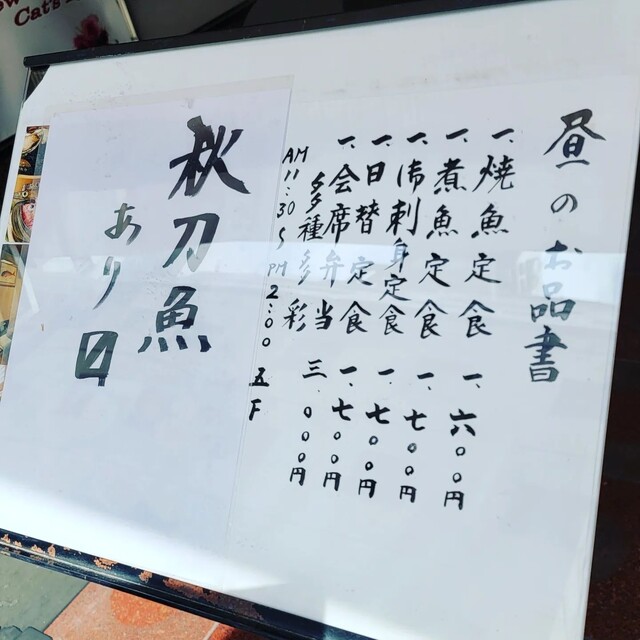 昼のお品書
一、焼魚定食 一、六〇〇円
一、煮魚定食 一、七〇〇円
一、御刺身定食 一、七〇〇円
一、日替定食 一、七〇〇円
一、会席弁当 三、〇〇〇円
多種多彩
AM 11:30〜PM 2:00 五F
秋刀魚
あり〼
Cat's